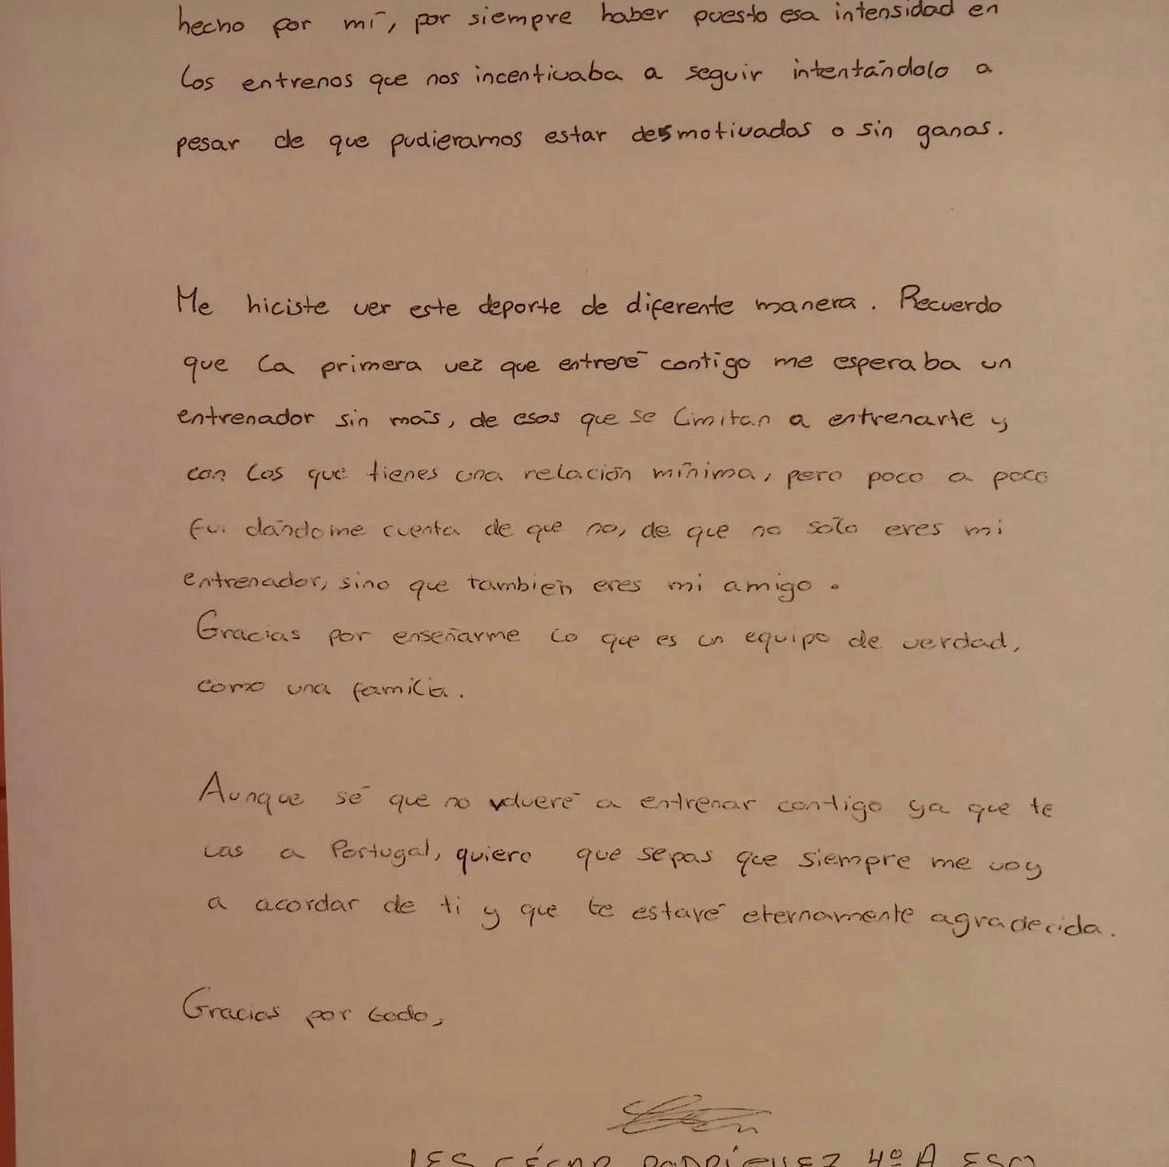 hecho por mí, por siempre haber puesto esa intensidad en
los entrenos que nos incentivaba a seguir intentándolo a
pesar de que pudieramos estar desmotivadas o sin ganas.
Me hiciste ver este deporte de diferente manera. Recuerdo
que la primera vez que entrené contigo me esperaba un
entrenador sin más, de esos que se limitan a entrenarte y
con los que tienes una relación mínima, pero poco a poco
fui dándome cuenta de que no, de que no sólo eres mi
entrenador, sino que también eres mi amigo.
Gracias por enseñarme lo que es un equipo de verdad,
como una familia.
Aunque sé que no volveré a entrenar contigo ya que te
vas a Portugal, quiero que sepas que siempre me voy
a acordar de ti y que te estaré eternamente agradecida.
Gracias por todo,
IES CÉSAR RODRÍGUEZ 4º A ESO